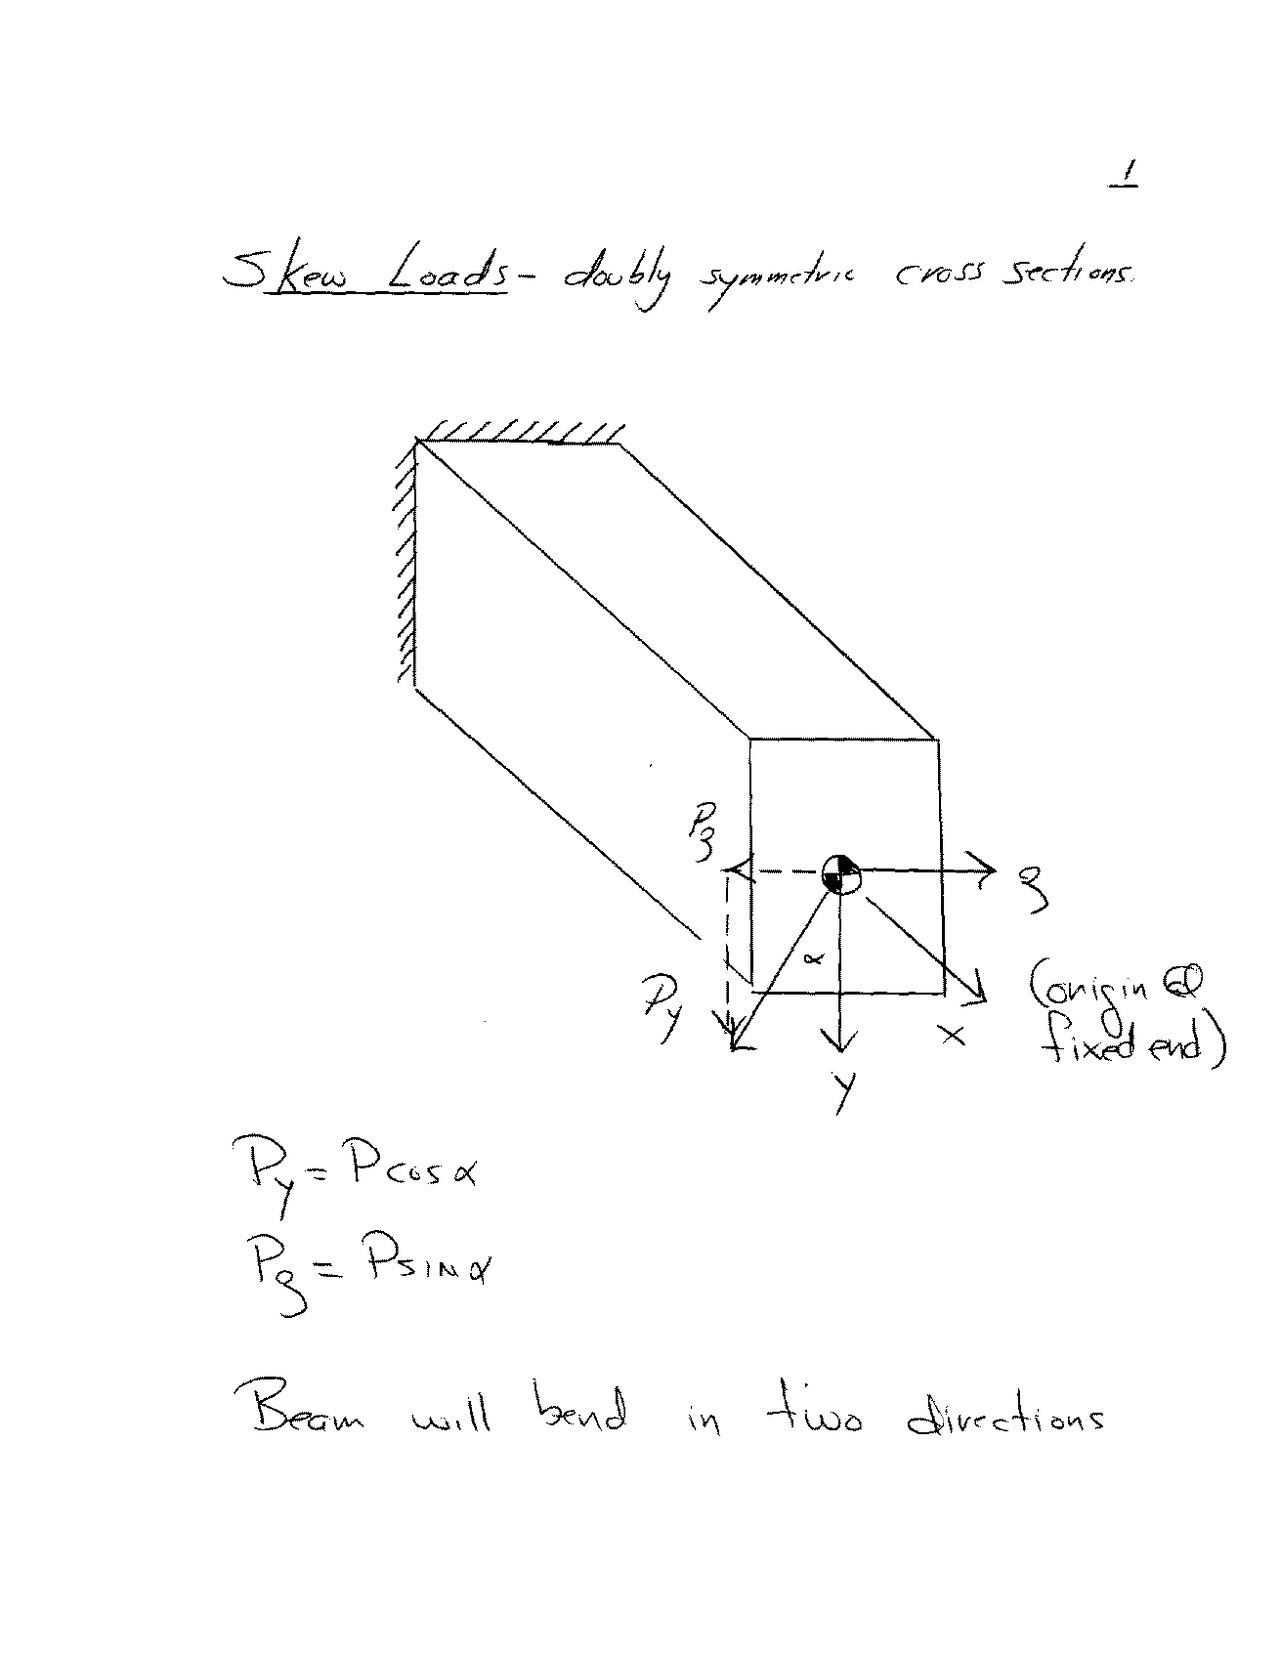 1
Skew Loads - doubly symmetric cross sections.
Pz
z
Py
α
(origin @
fixed end)
x
y
Py = P cos α
Pz = P sin α
Beam will bend in two directions